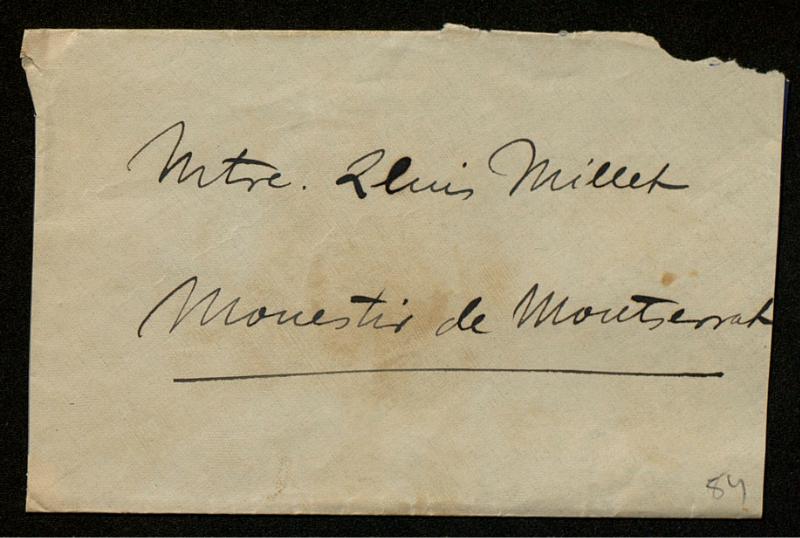 Mtre. Lluis Millet
Monestir de Montserrat
84